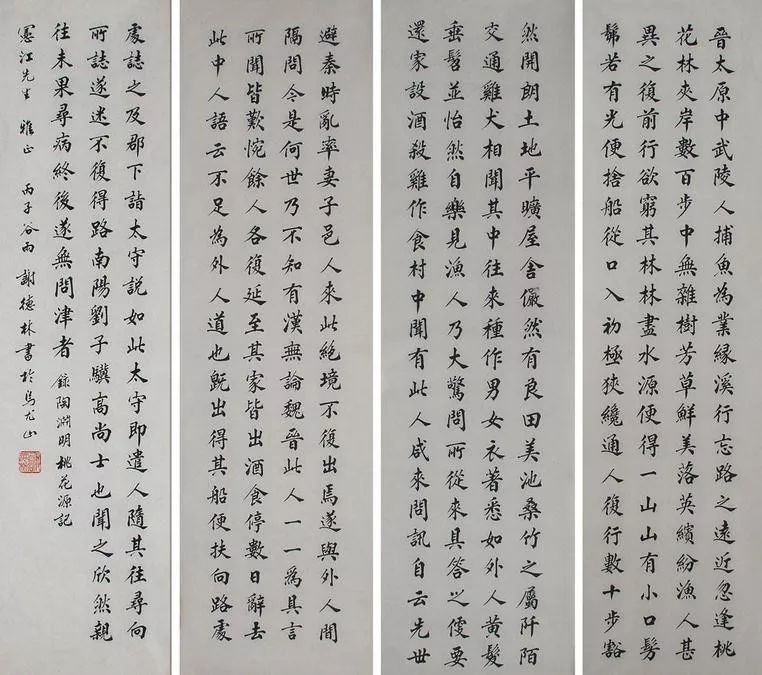 晉太原中武陵人捕魚為業緣溪行忘路之遠近忽逢桃
花林夾岸數百步中無雜樹芳草鮮美落英繽紛漁人甚
異之復前行欲窮其林林盡水源便得一山山有小口髣
髴若有光便捨船從口入初極狹纔通人復行數十步豁
然開朗土地平曠屋舍儼然有良田美池桑竹之屬阡陌
交通雞犬相聞其中往來種作男女衣著悉如外人黃髮
垂髫並怡然自樂見漁人乃大驚問所從來具答之便要
還家設酒殺雞作食村中聞有此人咸來問訊自云先世
避秦時亂率妻子邑人來此絕境不復出焉遂與外人間
隔問今是何世乃不知有漢無論魏晉此人一一為具言
所聞皆歎惋餘人各復延至其家皆出酒食停數日辭去
此中人語云不足為外人道也既出得其船便扶向路處
處誌之及郡下詣太守說如此太守即遣人隨其往尋向
所誌遂迷不復得路南陽劉子驥高尚士也聞之欣然親
往未果尋病終後遂無問津者 錄陶淵明桃花源記
憲江先生 雅正 丙子谷雨 謝德林書於馬龙山